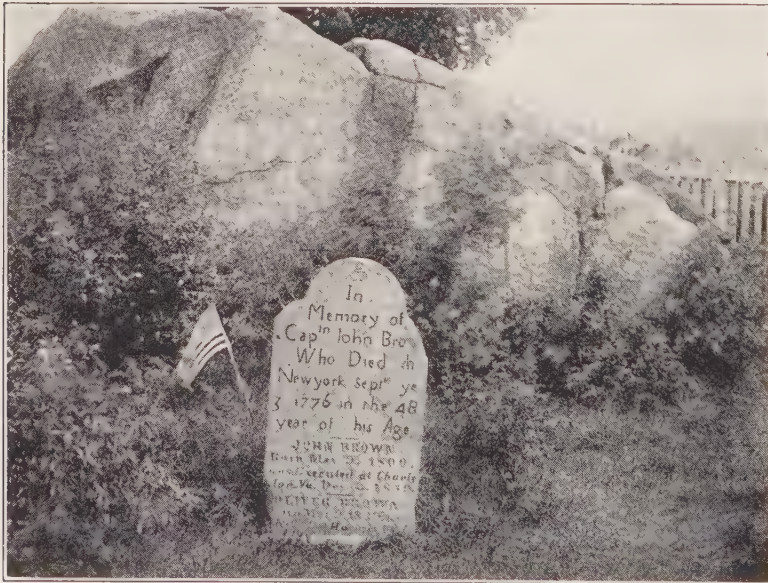 In
Memory of
Cap tn John Bro
Who Died
Newyork Sept ye
3 1776 in the 48
year of his Age
JOHN BROWN
Born May 1800
executed at Charls
Va. Dec. 2
OLIVER BROWN